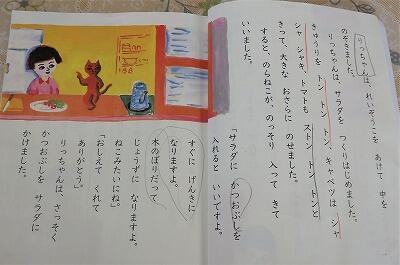 りっちゃんは、れいぞうこを あけて 中を
のぞきました。
りっちゃんは、サラダを つくりはじめました。
きゅうりを トン トン トン、キャベツは シャ
シャ シャキ、トマトも ストン トン トンと
きって、大きな おさらに のせました。
すると、のらねこが、のっそり 入って きて
いいました。
「サラダに かつおぶしを
入れると いいですよ。
すぐに げんきに
なりますよ。
木のぼりだって
じょうずに なりますよ。
ねこみたいにね。」
「おしえて くれて
ありがとう。」
りっちゃんは、さっそく
かつおぶしを サラダに
かけました。